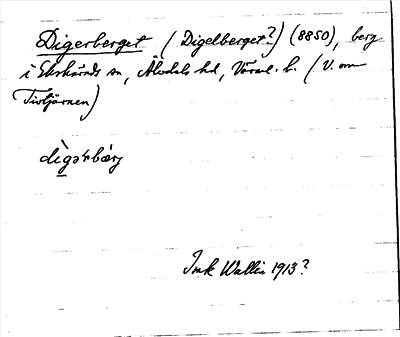 Digerberget (Digelberget?) (8850), berg
i Ekshärads sn, Älvdals hd, Värml. l. (V. om
Tivtjärnen)
dìgərbærj
Ink Wallin 1913?